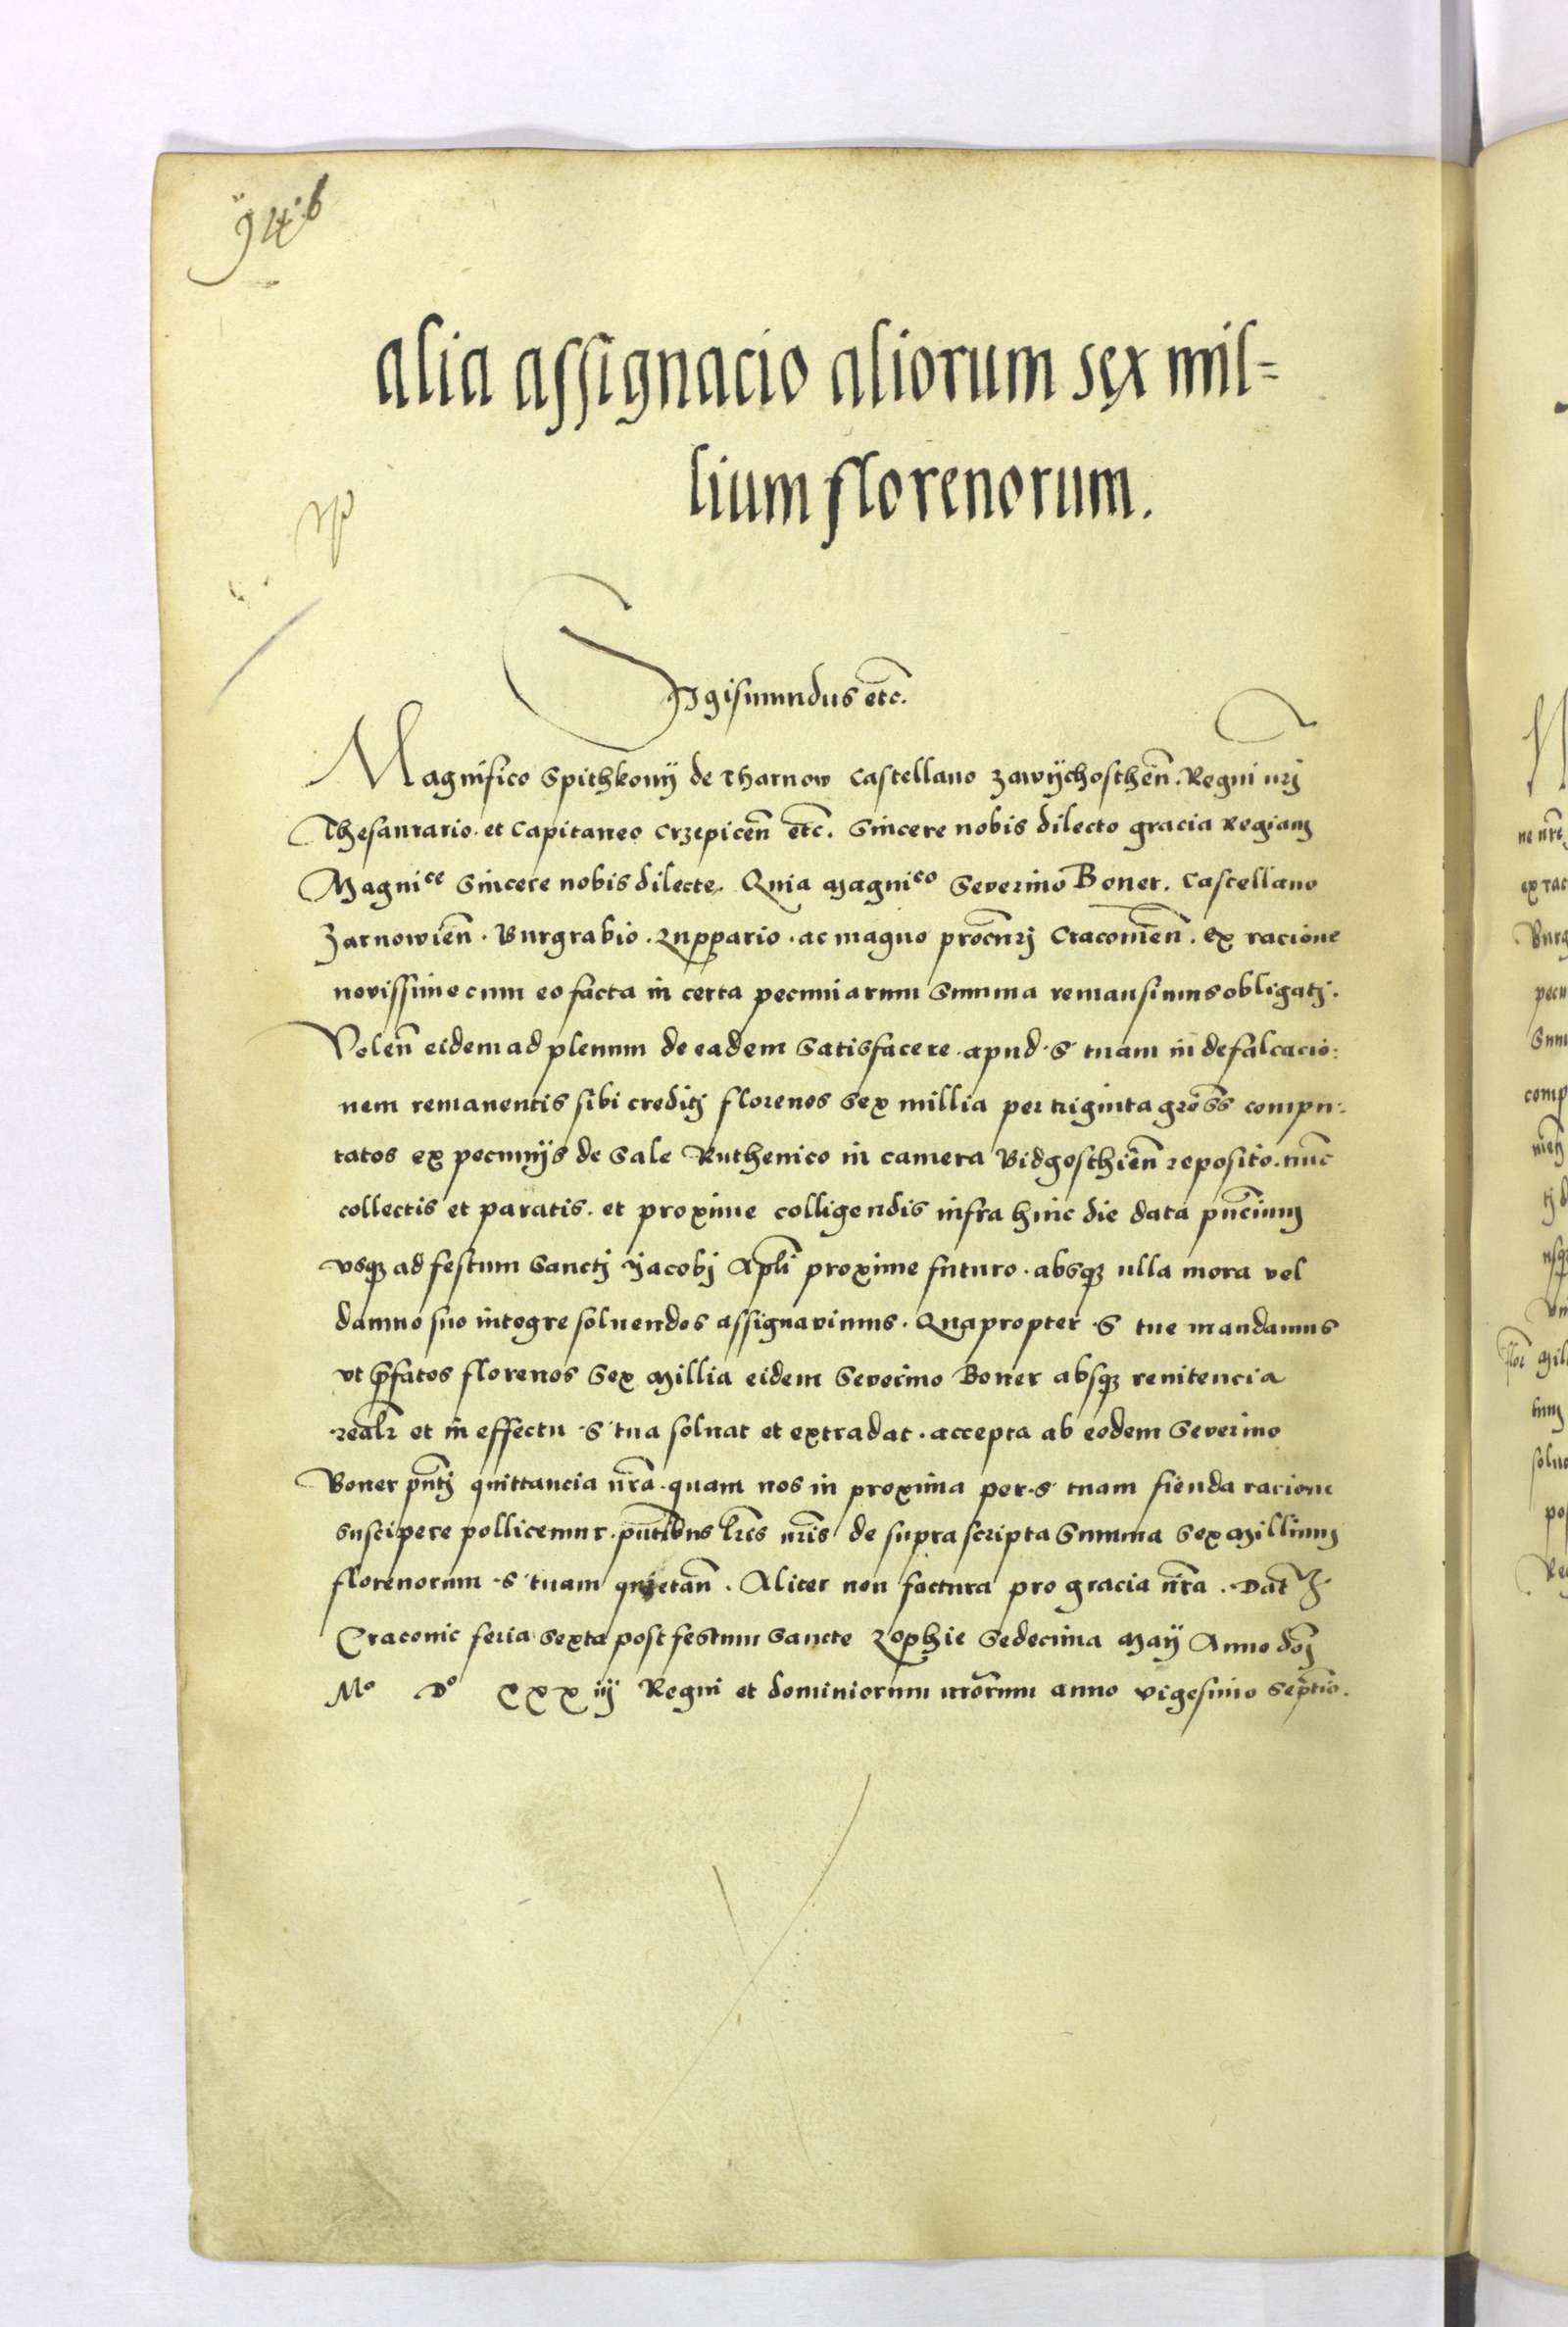 94·b
alia assignacio aliorum sex mil=
lium florenorum.
Sygismundus etc.
Magnifico Spithkonij de Tharnow Castellano Zawijchosthen̄. Regni nrj
Thesaurario. et Capitaneo Crzepicen̄ etc̄. Sincere nobis dilecto gracia Regiam
Magnice Sincere nobis dilecte. Quia Magnico Severino Boner. Castellano
Zarnowien̄. Burgrabio. Zuppario. ac magno procn̄rj Cracouien̄. ex racione
novissime cum eo facta in certa pecuniarum Summa remansimus obligatj.
Volen̄ eidem ad plenum de eadem Satisfacere. apud S tuam in defalcacio:
nem remanentis sibi creditj florenos Sex millia per triginta gross̄ compu:
tatos ex pecunijs de Sale Ruthenico in camera Bidgosthien̄ reposito. nunc̄
collectis et paratis. et proxime colligendis infra hinc die data pn̄cium
vsq3 ad festum Sanctj Jacobj Apl̄i proxime futuro. absq3 ulla mora vel
damno suo integre soluendos assignavimus. Quapropter S tue mandamus
vt p̄fatos florenos Sex Millia eidem Severino Boner absq3 renitencia
realr̄ et in effectu S tua soluat et extradat. accepta ab eodem Severino
Boner pn̄tj quittancia nr̄a. quam nos in proxima per S tuam fienda racione
suscipere pollicemur. pn̄tibus lr̄is nr̄is de supra scripta Summa Sex Millium
florenorum S tuam quietan̄. Aliter non factura pro gracia nr̄a. Dat̄
Cracouie feria Sexta post festum Sancte Zophie Sedecima Maij Anno dōj
Mo Do XXX iij Regni et dominiorum nr̄orum anno vigesimo Septīo.